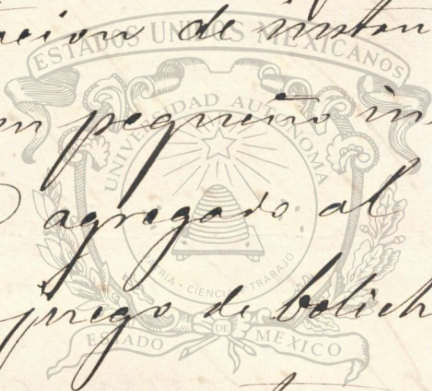 acion de instan
ESTADOS UNIDOS MEXICANOS
un pequeño in
UNIVERSIDAD AUTONOMA
agregado al
PATRIA · CIENCIA · TRABAJO
juego de bolich
ESTADO DE MEXICO